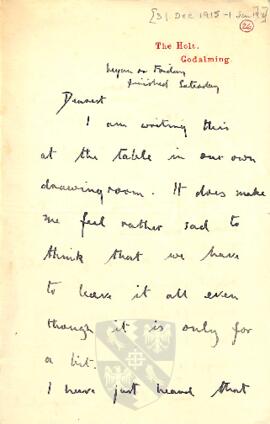 [31 Dec 1915 - 1 Jan 19
26
The Holt.
Godalming.
began on Friday
finished Saturday
Dearest
I am writing this
at the table in our own
drawingroom. It does make
me feel rather sad to
think that we have
to leave it all even
though it is only for
a bit.
I have just heard that